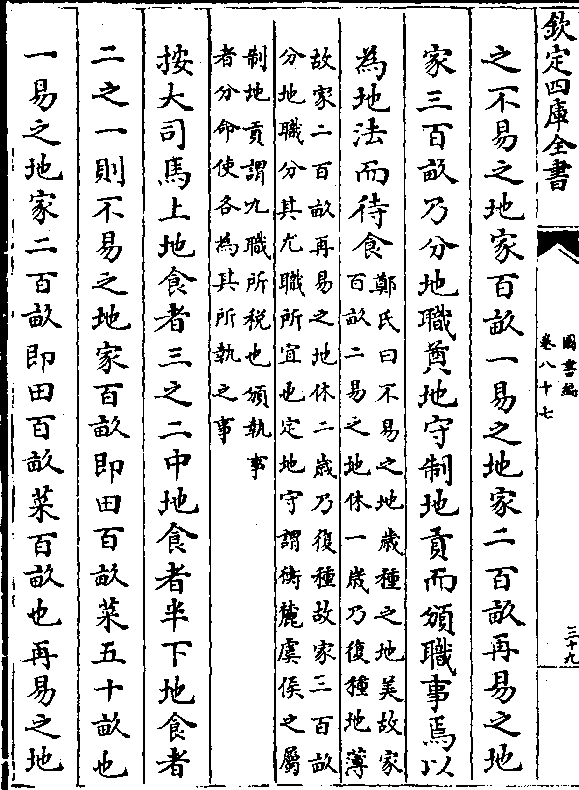 欽定四庫全書
圖書編
卷八十七
三十九
之不易之地家百畝一易之地家二百畝再易之地
家三百畝乃分地職奠地守制地貢而頒職事焉以
為地法而待食
鄭氏曰不易之地歲種之地美故家
百畝一易之地休一歲乃復種地薄
故家二百畝再易之地休二歲乃復種故家三百畝
分地職分其九職所宜也定地守謂衡麓虞侯之屬
制地貢謂九職所稅也頒執事
者分命使各為其所執之事
按大司馬上地食者三之二中地食者半下地食者
二之一則不易之地家百畝即田百畝菜五十畝也
一易之地家二百畝即田百畝菜百畝也再易之地